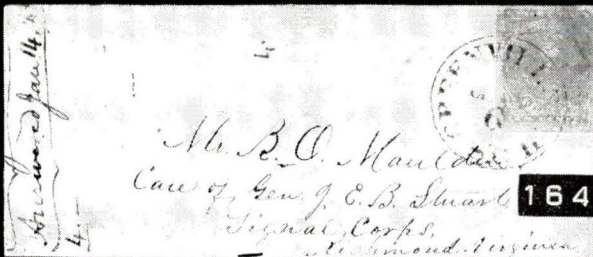 Answered Jan 14.
4.
Mr. B. O. Mauldin
Care of, Gen J. E. B. Stuart
Signal Corps,
Richmond. Virginia
164